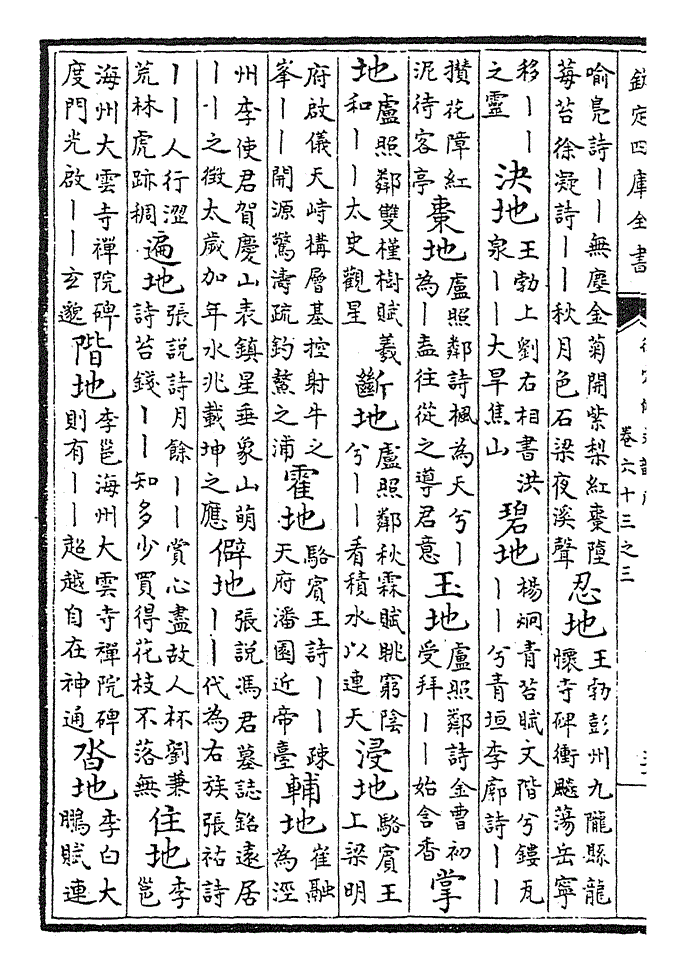 欽定四庫全書
卷六十三之三
喻鳧詩丨丨無塵金菊開紫梨紅棗墮
莓苔徐凝詩丨丨秋月色石梁夜溪聲
忍地
王勃彭州九隴縣龍
懷寺碑衝飈蕩岳寧
移丨丨
之靈
決地
王勃上劉右相書洪
泉丨丨大旱焦山
碧地
楊炯青苔賦文階兮鏤瓦
丨丨兮青垣李廓詩丨丨
攢花障紅
泥待客亭
棗地
盧照鄰詩楓為天兮丨
為丨盍往從之導君意
玉地
盧照鄰詩金曹初
受拜丨丨始含香
掌
地
盧照鄰雙槿樹賦羲
和丨丨太史觀星
斷地
盧照鄰秋霖賦眺窮陰
兮丨丨看積水以連天
浸地
駱賓王
上梁明
府啟儀天峙構層基控射牛之
峯丨丨開源驚濤疏釣鰲之浦
霍地
駱賓王詩丨丨疎
天府潘園近帝臺
輔地
崔融
為涇
州李使君賀慶山表鎮星垂象山萌
丨丨之徵太歲加年水兆載坤之應
僻地
張說馮君墓誌銘遠居
丨丨代為右族張祜詩
丨丨人行澀
荒林虎跡稠
遍地
張說詩月餘丨丨賞心盡故人杯劉兼
詩苔錢丨丨知多少買得花枝不落無
住地
李
邕
海州大雲寺禪院碑
度門光啟丨丨玄邈
階地
李邕海州大雲寺禪院碑
則有丨丨超越自在神通
沓地
李白大
鵬賦連